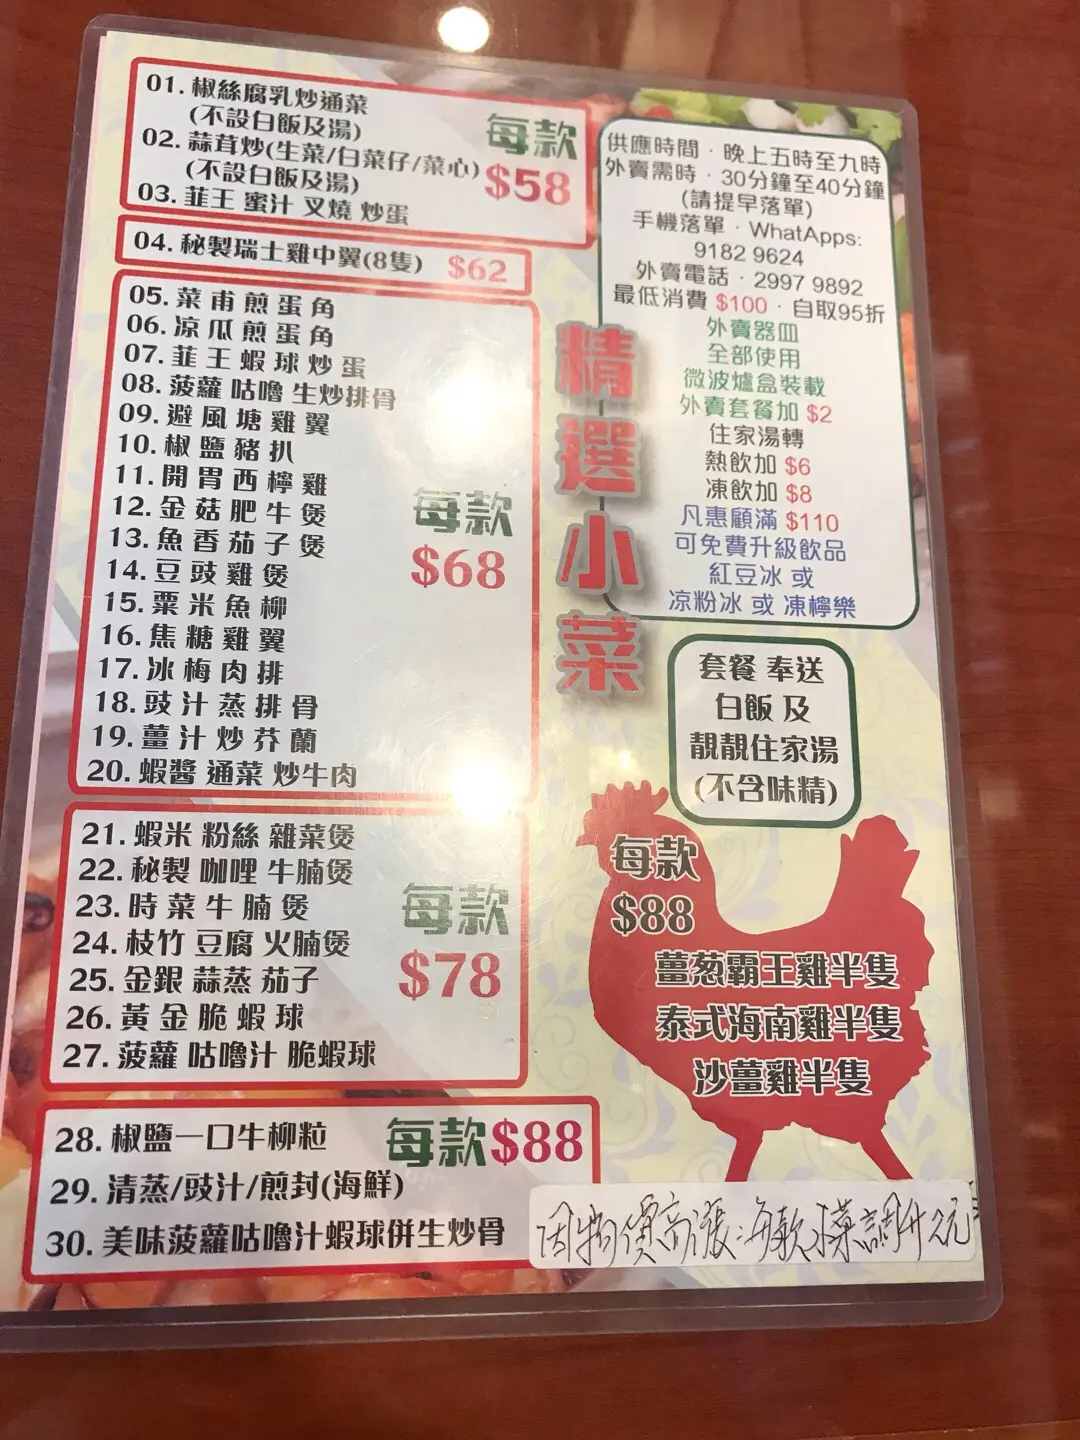 01. 椒絲腐乳炒通菜
(不設白飯及湯)
02. 蒜茸炒(生菜/白菜仔/菜心)
(不設白飯及湯)
03. 韮王 蜜汁 叉燒 炒蛋
每款
$58
04. 秘製瑞士雞中翼(8隻) $62
05. 菜甫煎蛋角
06. 凉瓜煎蛋角
07. 韮王蝦球炒蛋
08. 菠蘿 咕嚕 生炒排骨
09. 避風塘雞翼
10. 椒鹽豬扒
11. 開胃西檸雞
12. 金菇肥牛煲
13. 魚香茄子煲
14. 豆豉雞煲
15. 粟米魚柳
16. 焦糖雞翼
17. 冰梅肉排
18. 豉汁蒸排骨
19. 薑汁炒芥蘭
20. 蝦醬 通菜 炒牛肉
每款
$68
21. 蝦米 粉絲 雜菜煲
22. 秘製 咖哩 牛腩煲
23. 時菜牛腩煲
24. 枝竹 豆腐 火腩煲
25. 金銀 蒜蒸 茄子
26. 黃金脆蝦球
27. 菠蘿 咕嚕汁 脆蝦球
每款
$78
28. 椒鹽一口牛柳粒
29. 清蒸/豉汁/煎封(海鮮)
30. 美味菠蘿咕嚕汁蝦球併生炒骨
每款$88
精選小菜
供應時間 · 晚上五時至九時
外賣需時 · 30分鐘至40分鐘
(請提早落單)
手機落單 · WhatApps:
9182 9624
外賣電話 · 2997 9892
最低消費 $100 · 自取95折
外賣器皿
全部使用
微波爐盒裝載
外賣套餐加 $2
住家湯轉
熱飲加 $6
凍飲加 $8
凡惠顧滿 $110
可免費升級飲品
紅豆冰 或
凉粉冰 或 凍檸樂
套餐 奉送
白飯 及
靚靚住家湯
(不含味精)
每款
$88
薑葱霸王雞半隻
泰式海南雞半隻
沙薑雞半隻
因物價高漲:每款小菜調升2元